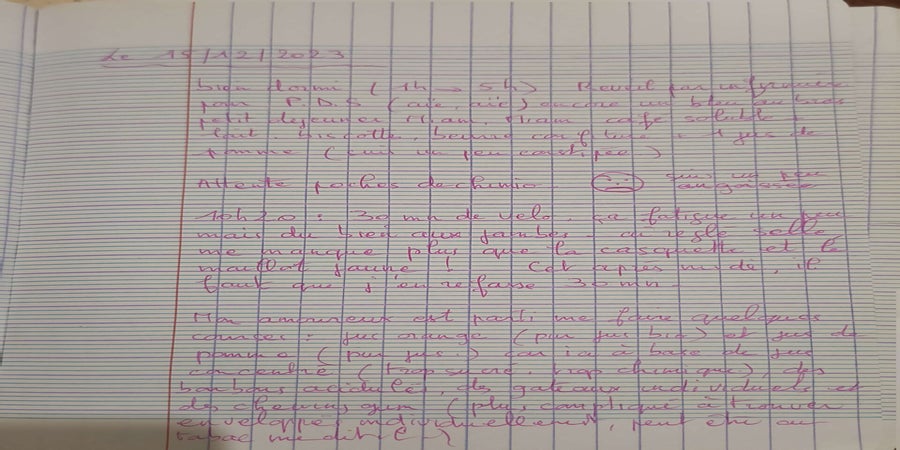 Le 15/12/2023
bien dormi (1h → 5h) Reveil par infirmière
pour P.D.S (aïe, aïe) encore un bleu au bras
petit dejeuner miam, miam café soluble +
lait, biscotte, beurre confiture + 1 jus de
pomme (suis un peu constipée)
Attente poches de chimio suis un peu
angoissée
10h20 : 30 mn de velo. ça fatigue un peu
mais du bien aux jambes - ai reglé selle
me manque plus que la casquette et le
maillot jaune ! Cet après midi, il
faut que j'en refasse 30 mn -
Mon amoureux est parti me faire quelques
courses : jus orange (pur jus bio) et jus de
pomme (pur jus.) car ici à base de jus
concentré (trop sucré, trop chimique), des
bonbons acidulé, des gateaux individuels et
des chewing gum (plus compliqué à trouver
enveloppés individuellement, peut être au
tabac me dit il)